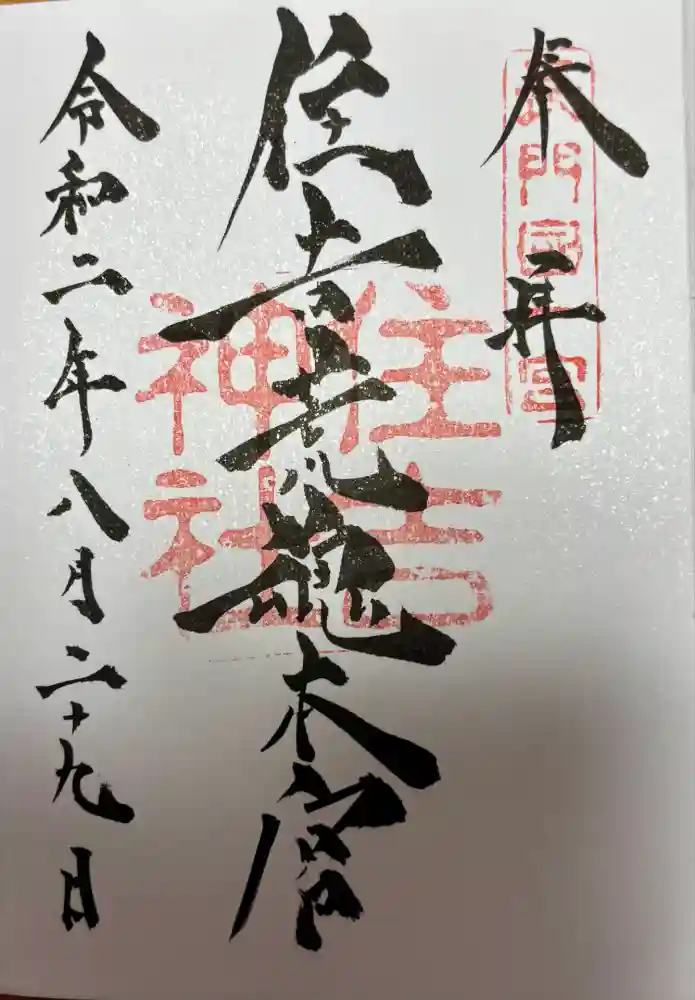 奉拝
長門國一宮
住吉荒魂本宮
住吉
神社
令和二年八月二十九日